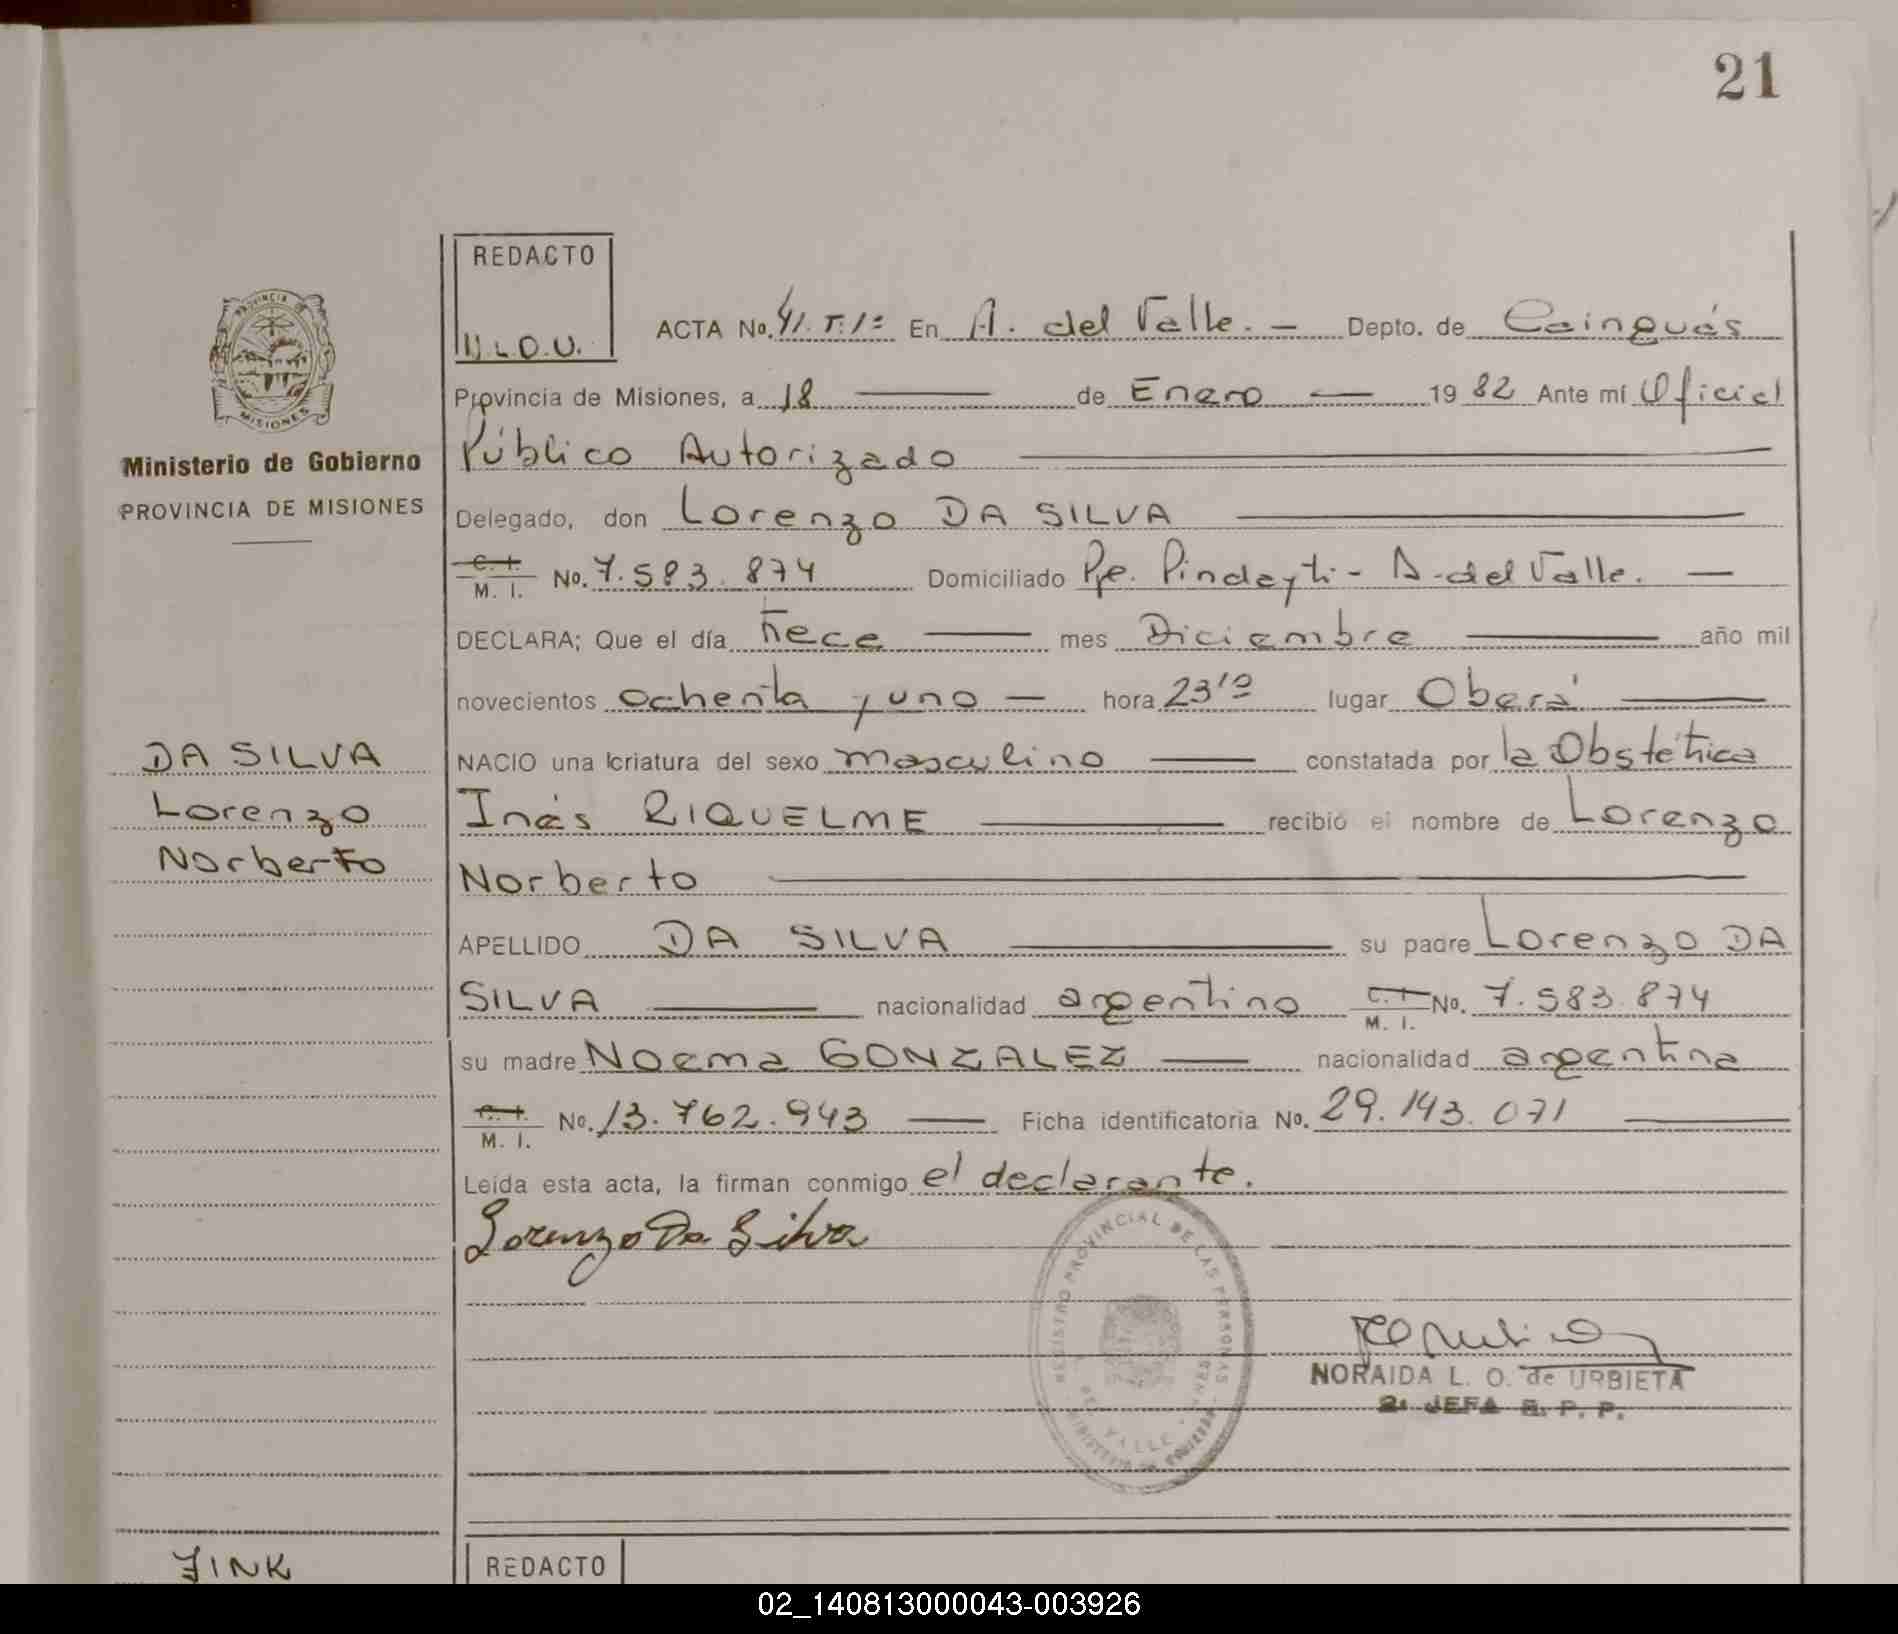 21
REDACTO
N.L.O.U.
ACTA No. 41. T: 1º En A. del Valle. — Depto. de Cainguás
Provincia de Misiones, a 18 — de Enero — 1982 Ante mí Oficial
Público Autorizado
Delegado, don Lorenzo DA SILVA
C. I. M. I. No. 7.583.874 Domiciliado Pje. Pindayti - A. del Valle. —
DECLARA; Que el día trece — mes Diciembre — año mil
novecientos ochenta y uno — hora 23,10 lugar Oberá —
NACIO una criatura del sexo masculino — constatada por la Obstétrica
Inés RIQUELME — recibió el nombre de Lorenzo
Norberto
APELLIDO DA SILVA — su padre Lorenzo DA
SILVA — nacionalidad argentino C. I. M. I. No. 7.583.874
su madre Noema GONZALEZ — nacionalidad argentina
C. I. M. I. No. 13.762.943 — Ficha identificatoria No. 29.143.071 —
Leída esta acta, la firman conmigo el declarante.
Lorenzo Da Silva
REGISTRO PROVINCIAL DE LAS PERSONAS
NORAIDA L. O. de URBIETA
2ª JEFA R. P. P.
PROVINCIA DE MISIONES
Ministerio de Gobierno
PROVINCIA DE MISIONES
DA SILVA
Lorenzo
Norberto
FINK
REDACTO
02_140813000043-003926